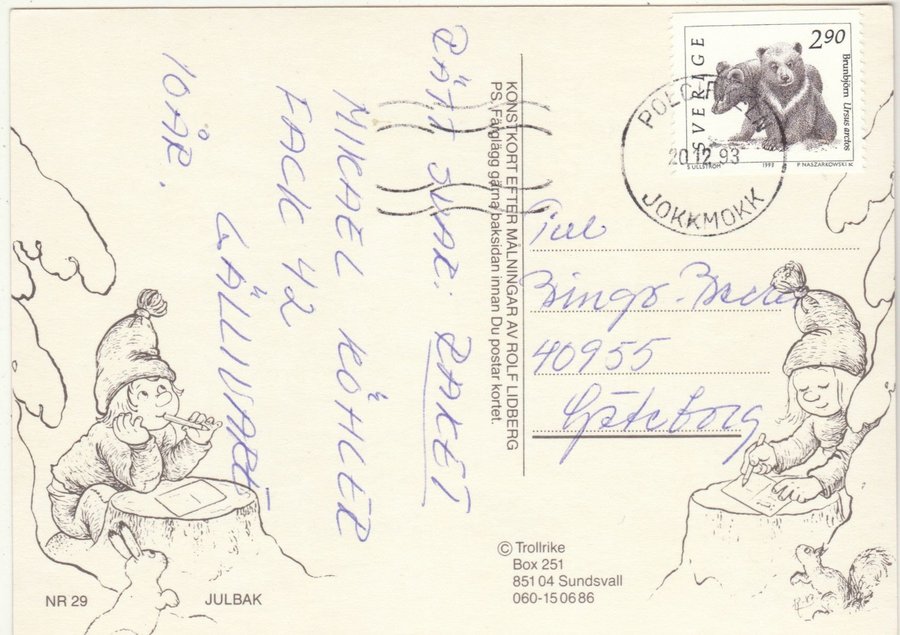 RÄTT SVAR: RAKET
MIKAEL KÖHLER
FACK 42
GÄLLIVARE
10 ÅR.
KONSTKORT EFTER MÅLNINGAR AV ROLF LIDBERG
PS. Färglägg gärna baksidan innan Du postar kortet.
SVERIGE
2.90
Brunbjörn Ursus arctos
S ULLSTRÖM 1993 P. NASZARKOWSKI SC
POLCIRKELN
20.12.93
JOKKMOKK
Till
Bingo-
40955
Göteborg
© Trollrike
Box 251
851 04 Sundsvall
060-15 06 86
NR 29 JULBAK